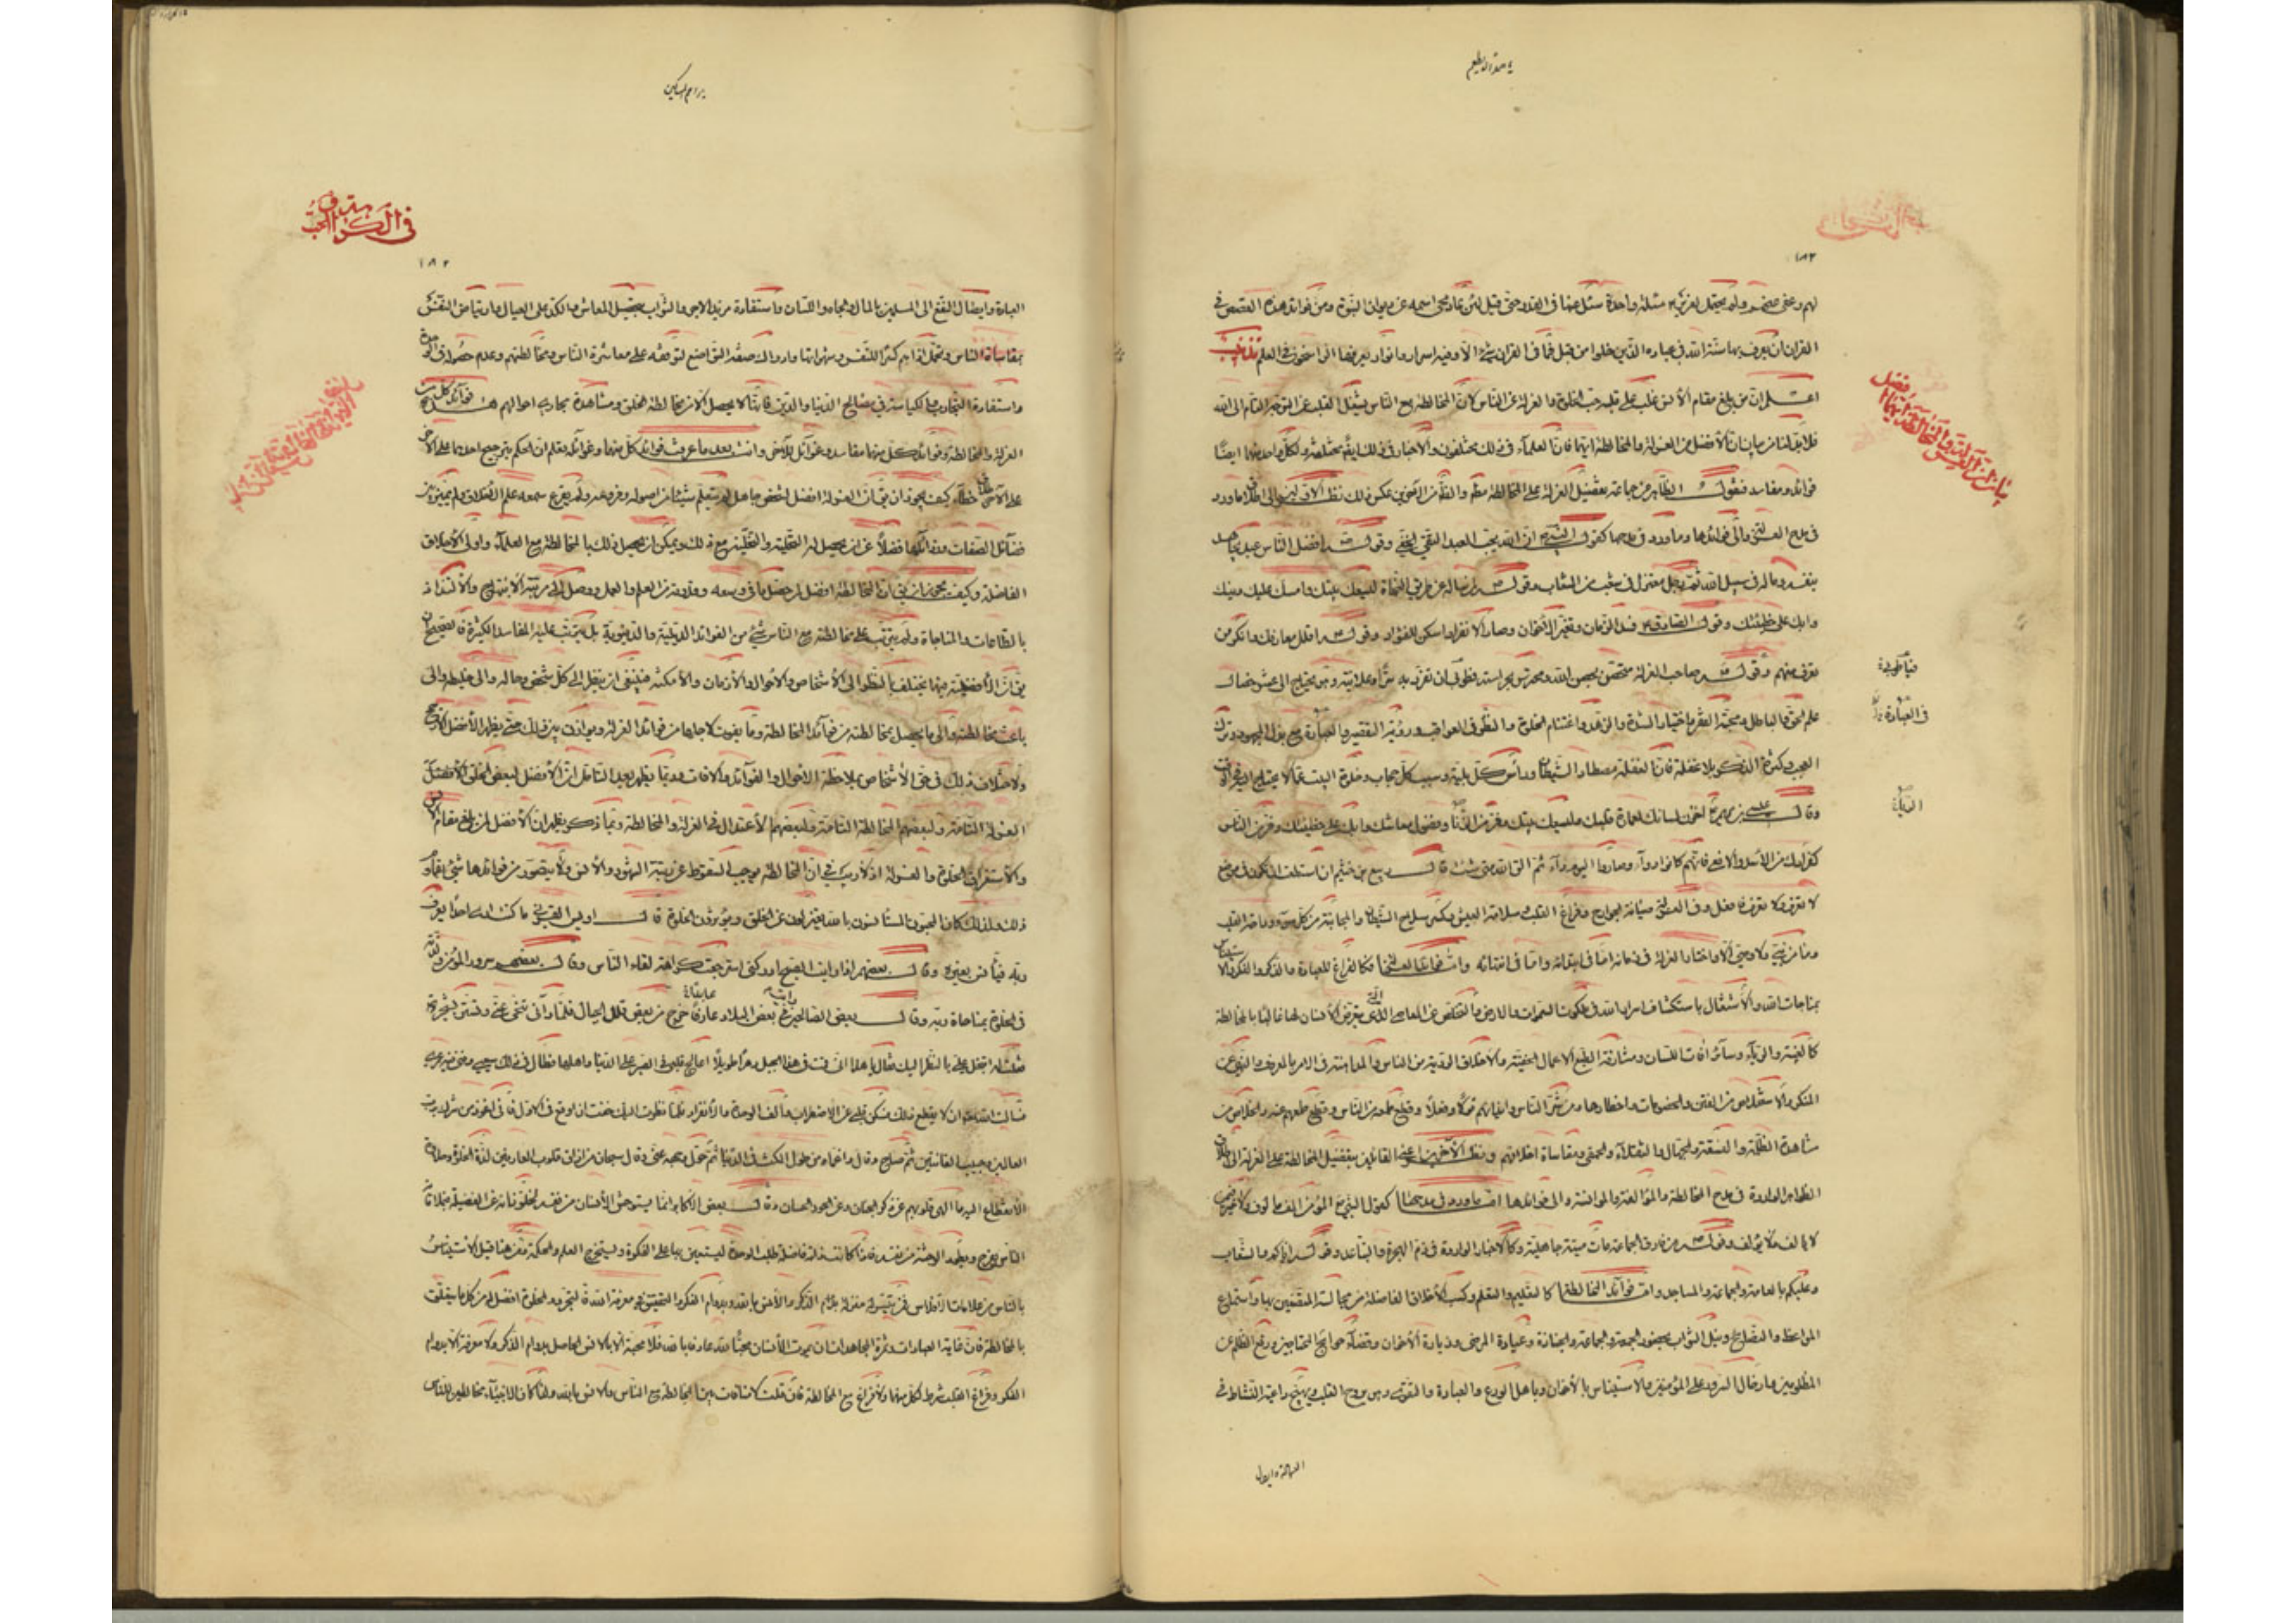 لهم وعفى صفح ولم يحتمل لعزير مسئلة واحدة سئل عنها في القدر حتى قيل لئن عاد محى اسمه عن ديوان النبوة ومن فوائد هذه القصص في
القران ان يعرف بها سنة الله في عباده الذين خلوا من قبل فما في القران شئ الا وفيه اسرار وانوار يعرفها الراسخون في العلم تذنيب
اعلم ان من بلغ مقام الانس غلب على قلبه حب الخلوة والعزلة عن الناس لان المخالطة مع الناس يشغل القلب عن التوجه التام الى الله
فلابد لنا من بيان ان الافضل من العزلة والمخالطة ايهما فان العلماء في ذلك مختلفون والاخبار في ذلك ايضا مختلفة ولكل واحد منهما ايضا
فوائد ومفاسد فنقول الظاهر من جماعة تفضيل العزلة على المخالطة مطلقا والظاهر من الآخرين عكس ذلك نظر الاولين الى اطلاق ما ورد
في مدح العزلة والى فوائدها وما ورد في مدحها كقول النبي ان الله يحب العبد التقي الخفي وقوله افضل الناس مؤمن مجاهد
بنفسه وماله في سبيل الله ثم رجل معتزل في شعب من الشعاب وقوله لمن ساله عن طريق النجاة ليسعك بيتك وامسك عليك دينك
وابك على خطيئتك وقول الصادق فسد الزمان وتغير الاخوان وصار الانفراد اسكن للفؤاد وقوله اقلل معارفك وانكر من
تعرف منهم وقوله صاحب العزلة متحصن بحصن الله ومحترس بحراسته فطوبى لمن تفرد به سرا وعلانية وهو يحتاج الى عشر خصال
علم الحق والباطل ومحبة الفقر واختيار الشدة والزهد واغتنام الخلوة والنظر في العواقب ورؤية التقصير والعبادة مع بذل المجهود وترك
العجب وكثرة الذكر بلا غفلة فان الغفلة مصطاد الشيطان ورأس كل بلية وسبب كل حجاب وخلوة البيت عما لا يحتاج اليه في الوقت
وقال عيسى بن مريم اخزن لسانك لعمارة قلبك وليسعك بيتك وفر من الرياء وفضول معاشك وابك على خطيئتك وفر من الناس
فرارك من الاسد والافعى فانهم كانوا دواء وصاروا اليوم داء ثم الق الله متى شئت قال ربيع بن خثيم ان استطعت ان تكون في موضع
لا تعرف ولا تعرف فافعل وفي العزلة صيانة الجوارح وفراغ القلب وسلامة العيش وكسر سلاح الشيطان والمجانبة من كل سوء وراحة القلب
وما من نبي ولا وصي الا واختار العزلة في زمانه اما في ابتدائه واما في انتهائه واما فوائد العزلة فكالفراغ للعبادة والذكر والفكر
بمناجات الله والاشتغال باستكشاف اسرار الله في ملكوت السموات والارض والتخلص عن المعاصي التي يتعرض الانسان لها غالبا بالمخالطة
كالغيبة والرياء وسائر آفات اللسان ومسارقة الطبع الاعمال الخفية والاخلاق الردية من الناس والمداهنة في الامر بالمعروف والنهي عن
المنكر والاستخلاص من الفتن والخصومات واخطارها ومن شر الناس وايذائهم قولا وفعلا وقطع طمعه من الناس وقطع طمعهم عنه والخلاص من
مشاهدة الظلمة والفسقة والجهال والثقلاء والحمقى ومقاساة اخلاقهم ونظر الآخرين اعني القائلين بتفضيل المخالطة على العزلة الى اطلاق
الظواهر الواردة في مدح المخالطة والمؤالفة والموانسة والى فوائدها اما ما ورد في مدحها كقول النبي المؤمن الف مالوف ولا خير فيمن
لا يالف ولا يؤلف وقوله من فارق الجماعة مات ميتة جاهلية وكالاخبار الواردة في ذم الهجرة والتباعد وقوله اياكم والشعاب
وعليكم بالعامة والجماعة والمساجد واما فوائد المخالطة كالتعليم والتعلم وكسب الاخلاق الفاضلة من مجالسة المتصفين بها واستماع
المواعظ والنصايح ونيل الثواب بحضور الجمعة والجماعة والجنازة وعيادة المرضى وزيارة الاخوان وقضاء حوائج المحتاجين ورفع الظلم عن
المظلومين وادخال السرور على المؤمنين والاستيناس بالاخوان وباهل الورع والعبادة والتقوى وهو يروح القلب ويهيج داعية النشاط في
العبادة وايصال
في العبادة
١٨٢
العبادة وايصال النفع الى المسلمين بالمال والجاه واللسان واستفادة مزيد الاجر والثواب بتحصيل المعاش والكد على العيال وارتياض النفس
بمقاساة الناس وتحمل اذاهم كسرا للنفس وشهواتها وادراك صفة التواضع لتوقفه على معاشرة الناس ومخالطتهم وعدم حصوله في الوحدة
واستفادة التجارب والكياسة في مصالح الدنيا والدين فانها لا يحصل الا من مخالطة الخلق ومشاهدة مجاري احوالهم هذه فوائد كل من
العزلة والمخالطة وفوائد كل منهما مفاسد وغوائل للآخر وانت بعد ما عرفت فوائد كل منهما وغوائله تعلم ان الحكم بترجيح احدهما على الآخر
على الاطلاق خطأ وكيف يجوز ان يق ان العزلة افضل لشخص جاهل لم يتعلم شيئا من اصوله وفروعه ولم يقرع سمعه علم الاخلاق ولم يميز بين
فضائل الصفات ورذائلها فضلا عن ان يحصل له التخلية والتحلية مع ذلك ويمكن ان يحصل ذلك بالمخالطة مع العلماء واولى الاخلاق
الفاضلة وكيف يجوز ان يق ان المخالطة افضل لمن حصل ما في وسعه وقدرته من العلم والعمل ووصل الى مرتبة الابتهاج والالتذاذ
بالطاعات والمناجاة ولم يترتب على مخالطته مع الناس شئ من الفوائد الدينية والدنيوية بل يترتب عليه المفاسد الكثيرة فالصحيح ان
يق ان الافضلية فيهما يختلف بالنظر الى الاشخاص والاحوال والازمان والامكنة فينبغي ان ينظر الى كل شخص وحاله والى خليطه والى
باعث مخالطته والى ما يحصل بمخالطته من فوائد المخالطة وما يفوت لاجلها من فوائد العزلة ويوازن بين ذلك حتى يظهر الافضل
ولاختلاف ذلك في حق الاشخاص بملاحظة الاحوال والفوائد والافات فربما يظهر بعد التامل ان الافضل لبعض الخلق
العزلة التامة ولبعضهم المخالطة التامة ولبعضهم الاعتدال في العزلة والمخالطة ومما ذكر يظهر ان الافضل لمن بلغ مقام الانس
والاستغراق الخلوة والعزلة اذ لا ريب في ان المخالطة يوجب السقوط عن مرتبة الشهود والانس ولا يتصور من فوائدها شئ يقاوم
ذلك ولذلك كان المحبون المستانسون بالله يعتزلون عن الخلق ويؤثرون الخلوة قال اويس القرني ما كنت ارى احدا يعرف
ربه فيأنس بغيره وقال بعضهم اذا رايت الصبح ادركني استرجعت كراهة لقاء الناس وقال بعضهم سرور المؤمن ولذته
في الخلوة بمناجاة ربه وقال بعض الصالحين رايت في بعض البلاد عابدا خرج من بعض قلل الجبال فلما رآني تنحى عني وتستر بشجرة
فقلت له ا تبخل علي بالنظر اليك فقال يا هذا اني قمت في هذا الجبل دهرا طويلا اعالج قلبي في الصبر على الدنيا واهلها فطال في ذلك تعبي وفنى فيه عمري
فسالت الله تعالى ان لا يقطع ذلك فسكن قلبي عن الاضطراب والف الوحدة والانفراد فلما نظرت اليك خفت ان اوقع في الاول فاني اعوذ من شرك برب
العالمين وحبيب القانتين ثم صاح وقال واغماه من طول المكث في الدنيا ثم حول وجهه عني وقال سبحان من اذاق قلوب العارفين لذة الخلوة وحلاوة
الانقطاع اليه ما الهى قلوبهم عن ذكر الجنان وعن الحور الحسان وقال بعض الاكابر انما يستوحش الانسان من نفسه لخلو ذاته عن الفضيلة فيلاقي
الناس ويفرح ويطرد الوحشة عن نفسه فاذا كانت ذاته فاضلة طلب الوحدة ليستعين بها على الفكرة ويستخرج العلم والحكمة ومن هنا قيل الاستيناس
بالناس من علامات الافلاس فمن تيسر له منزلة بدوام الذكر والانس بالله وبدوام الفكر التحقيق في معرفة الله فالتجرد والخلوة افضل له من كل ما يتعلق
بالمخالطة فان غاية العبادات وثمرة المجاهدات ان يموت الانسان محبا لله عارفا بالله فلا محبة الا بالانس الحاصل بدوام الذكر ولا معرفة الا بدوام
الفكر وفراغ القلب شرط لكل منهما ولا فراغ مع المخالطة فان قلت لا منافات بين المخالطة مع الناس والانس بالله ولذا كان الانبياء مخالطين للناس